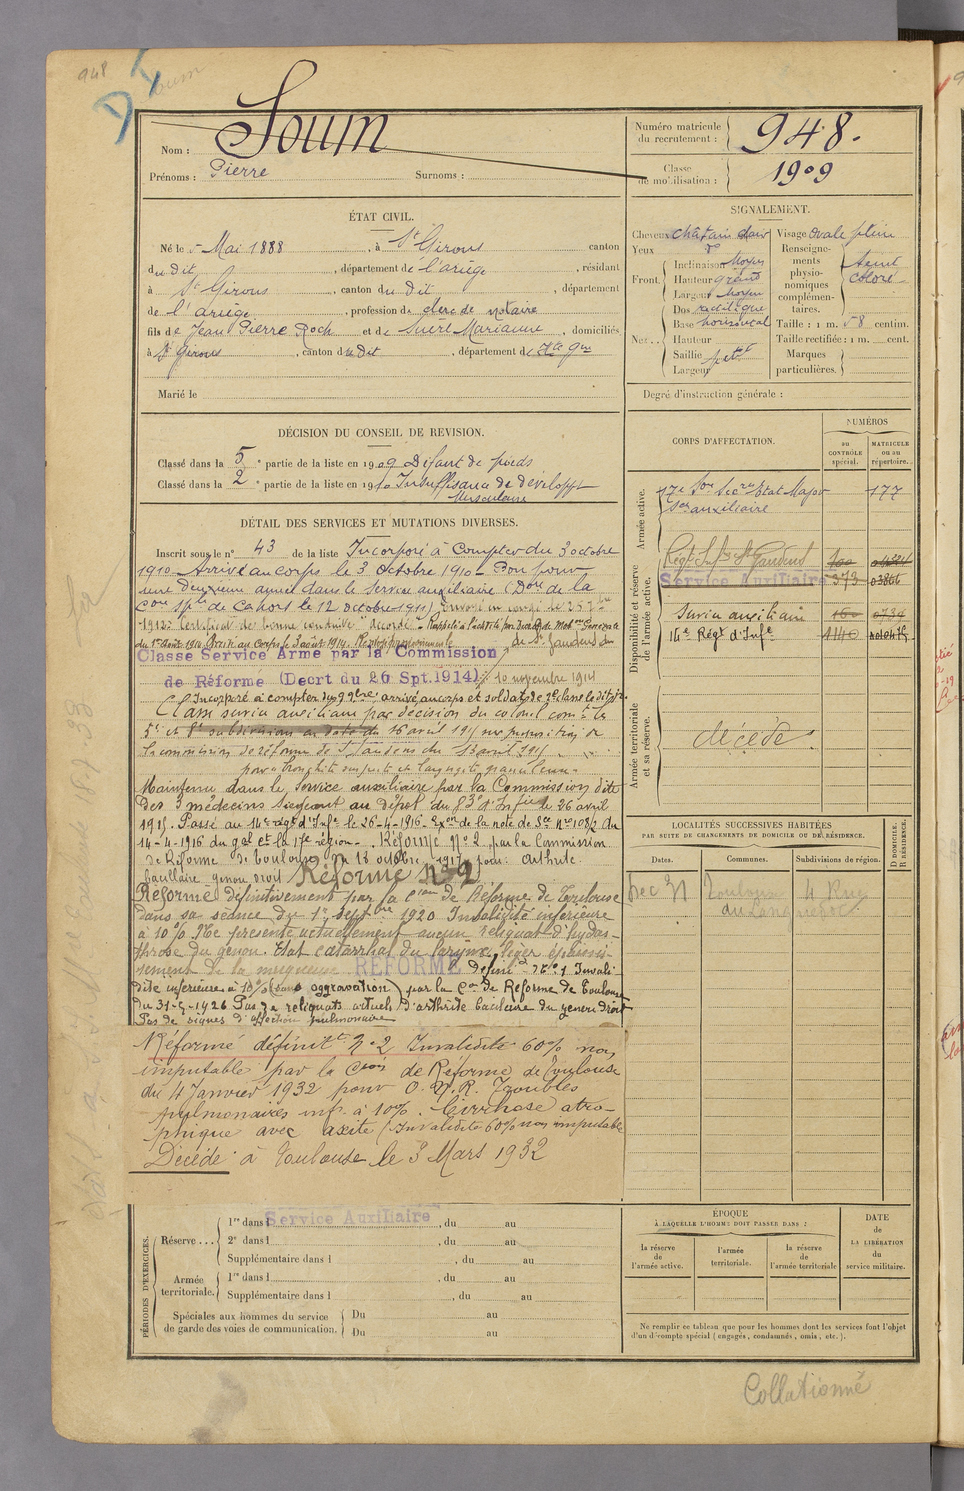 948
Soum
Nom : Soum
Prénoms : Pierre Surnoms :
Numéro matricule du recrutement : 948.
Classe de mobilisation : 1909
ÉTAT CIVIL.
Né le 5 Mai 1888, à St Girons canton
du dit, département de l'ariège, résidant
à St Girons, canton du dit, département
de l'ariège, profession de clerc de notaire
fils de Jean Pierre Roch et de Marianne, domiciliés
à St Girons, canton du dit, département de Hte Gne
Marié le
SIGNALEMENT.
Cheveux châtain clair
Yeux do
Front Inclinaison Moyen
Hauteur grand
Largeur Moyen
Nez Dos rectiligne
Base horizontal
Hauteur
Saillie petit
Largeur
Visage Ovale plein
Renseignements physionomiques complémentaires. teint coloré
Taille : 1 m. 58 centim.
Taille rectifiée : 1 m. cent.
Marques particulières.
Degré d'instruction générale :
DÉCISION DU CONSEIL DE REVISION.
Classé dans la 5e partie de la liste en 1909 Défaut de poids
Classé dans la 2e partie de la liste en 1910 Insuffisance de développt
Musculaire
DÉTAIL DES SERVICES ET MUTATIONS DIVERSES.
Inscrit sous le no 43 de la liste Incorporé à compter du 3 octobre
1910 Arrivé au corps le 3 Octobre 1910 Bon pour
une deuxième année dans le service auxiliaire (Don de la
Con Sple de Cahors le 12 octobre 1911) Envoyé en congé le 25 7bre
1912. Certificat de bonne conduite "accordé". Rappelé à l'activité par Décret de Mobon Générale
du 1er Août 1914. Arrivé au Corps le 3 août 1914. de St Gaudens du
Classé Service Armé par la Commission
de Réforme (Decrt du 26 Spt.1914) 10 novembre 1914
Incorporé à compter du arrivé au corps et soldat de 2e classe le dit jr.
Classé service auxiliaire par décision du colonel comt les
5e et 8e subdivisions en date du 16 avril 1915 sur proposition de
la commission de réforme de St Gaudens du 13 avril 1915
pour bronchite suspecte et laryngite granuleuse.
Maintenu dans le Service auxiliaire par la Commission dite
des 3 médecins siégeant au dépôt du 83e d'Infie le 26 avril
1915. Passé au 14e régt d'Infe le 26-4-1916. Exon de la note de Sce No 1082 du
14-4-1916 du gal Ct la 17e région. Réformé No 2 par la Commission
de Réforme de Toulouse du 18 octobre 1917 pour : arthrite
bacillaire genou droit Réforme No 2
Réformé définitivement par la Cion de Réforme de Toulouse
dans sa séance du 1er Septbre 1920 Invalidité inférieure
à 10% Ne présente actuellement aucun reliquat d'hydarthrose
du genou. Etat catarrhal du larynx, léger épaississement
de la muqueuse REFORME Défini No 1 Invalidité
inférieure à 10% (sans aggravation) par la Con de Réforme de Toulouse
du 31-5-1926 Pas de reliquats actuels d'arthrite bacillaire du genou droit
Pas de signes d'affection pulmonaire
Réformé définitt No 2 Invalidité 60% non
imputable par la Cion de Réforme de Toulouse
du 4 Janvier 1932 pour O.N.R. Troubles
pulmonaires inf. à 10%. Cirrhose atrophique
avec axite (Invalidité 60% non imputable
Décédé à Toulouse le 3 Mars 1932
CORPS D'AFFECTATION.
NUMÉROS
au CONTRÔLE spécial.
MATRICULE ou au répertoire.
Armée active.
17e Son Secres Etat Major 177
Ser auxiliaire
Disponibilité et réserve de l'armée active.
Régt Infie St Gaudens
Service Auxiliaire 373
Service auxiliaire
14e Régt d'Infe
Armée territoriale et sa réserve.
décédé
LOCALITÉS SUCCESSIVES HABITÉES
PAR SUITE DE CHANGEMENTS DE DOMICILE OU DE RÉSIDENCE.
Dates. Communes. Subdivisions de région. D DOMICILE. R RÉSIDENCE.
Dec 31 Toulouse 4 Rue
du Languedoc
PÉRIODES D'EXERCICES.
Réserve ... 1re dans l Service Auxiliaire, du au
2e dans l, du au
Supplémentaire dans l, du au
Armée territoriale. 1re dans l, du au
Supplémentaire dans l, du au
Spéciales aux hommes du service de garde des voies de communication. Du au
Du au
ÉPOQUE
À LAQUELLE L'HOMME DOIT PASSER DANS :
la réserve de l'armée active.
l'armée territoriale.
la réserve de l'armée territoriale
DATE de LA LIBÉRATION du service militaire.
Ne remplir ce tableau que pour les hommes dont les services font l'objet
d'un décompte spécial (engagés, condamnés, omis, etc.).
Collationné